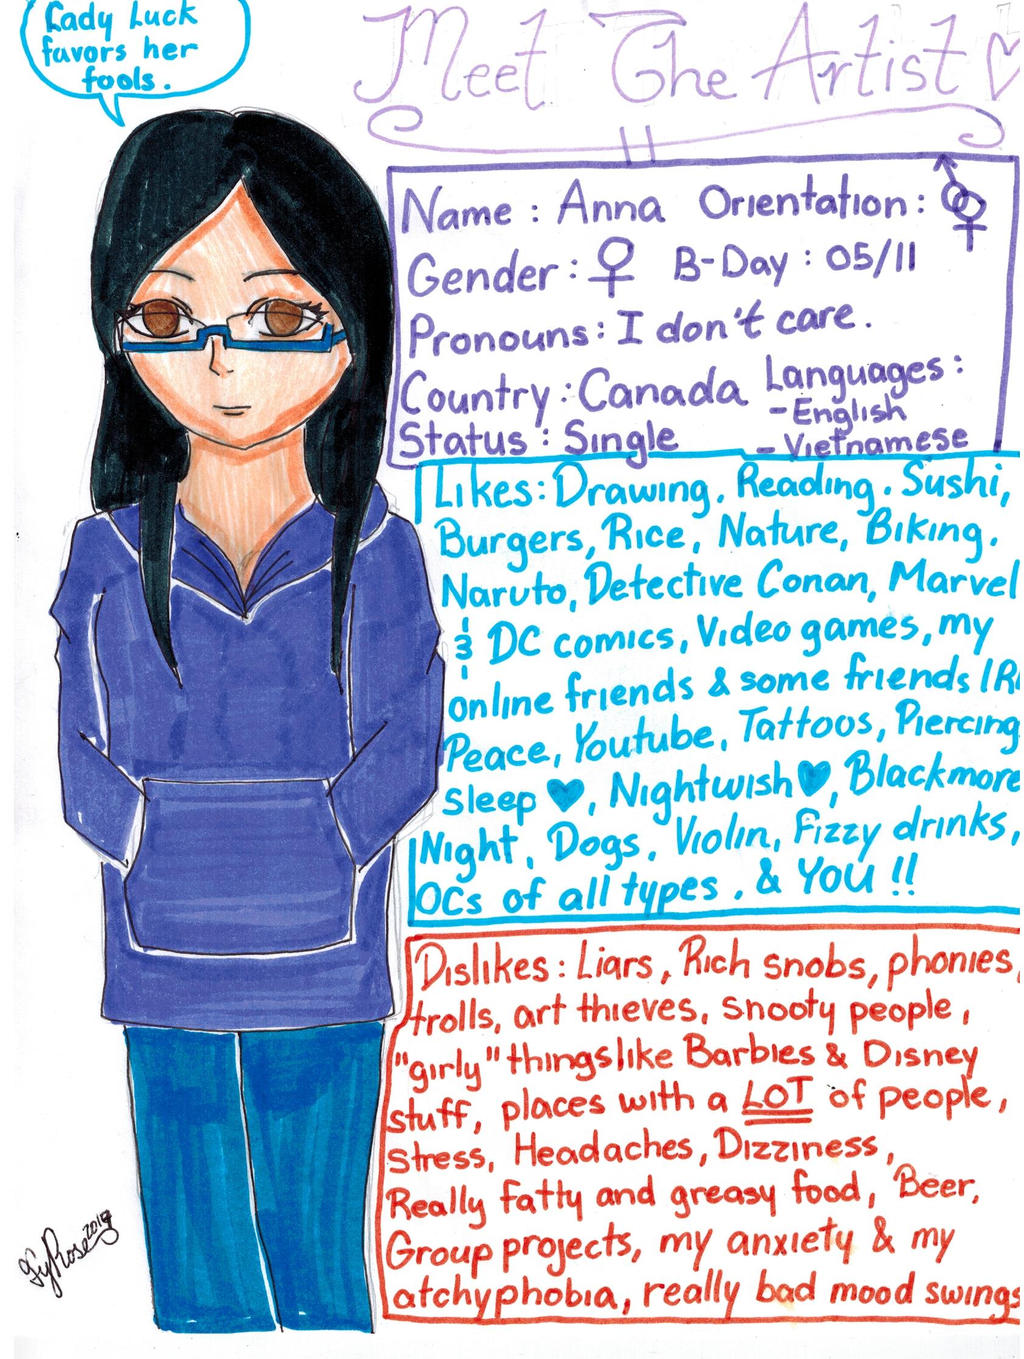 Lady Luck
favors her
fools.
Meet The Artist
Name : Anna Orientation :
Gender : ♀ B-Day : 05/11
Pronouns : I don't care.
Country : Canada
Languages :
- English
- Vietnamese
Status : Single
Likes: Drawing, Reading, Sushi,
Burgers, Rice, Nature, Biking,
Naruto, Detective Conan, Marvel
& DC comics, Video games, my
online friends & some friends IR
Peace, Youtube, Tattoos, Piercing
Sleep ♥, Nightwish ♥, Blackmore
Night, Dogs, Violin, Fizzy drinks,
OCs of all types, & YOU !!
Dislikes : Liars, Rich snobs, phonies,
trolls, art thieves, snooty people,
"girly" things like Barbies & Disney
stuff, places with a LOT of people,
stress, Headaches, Dizziness,
Really fatty and greasy food, Beer,
Group projects, my anxiety & my
atchyphobia, really bad mood swings